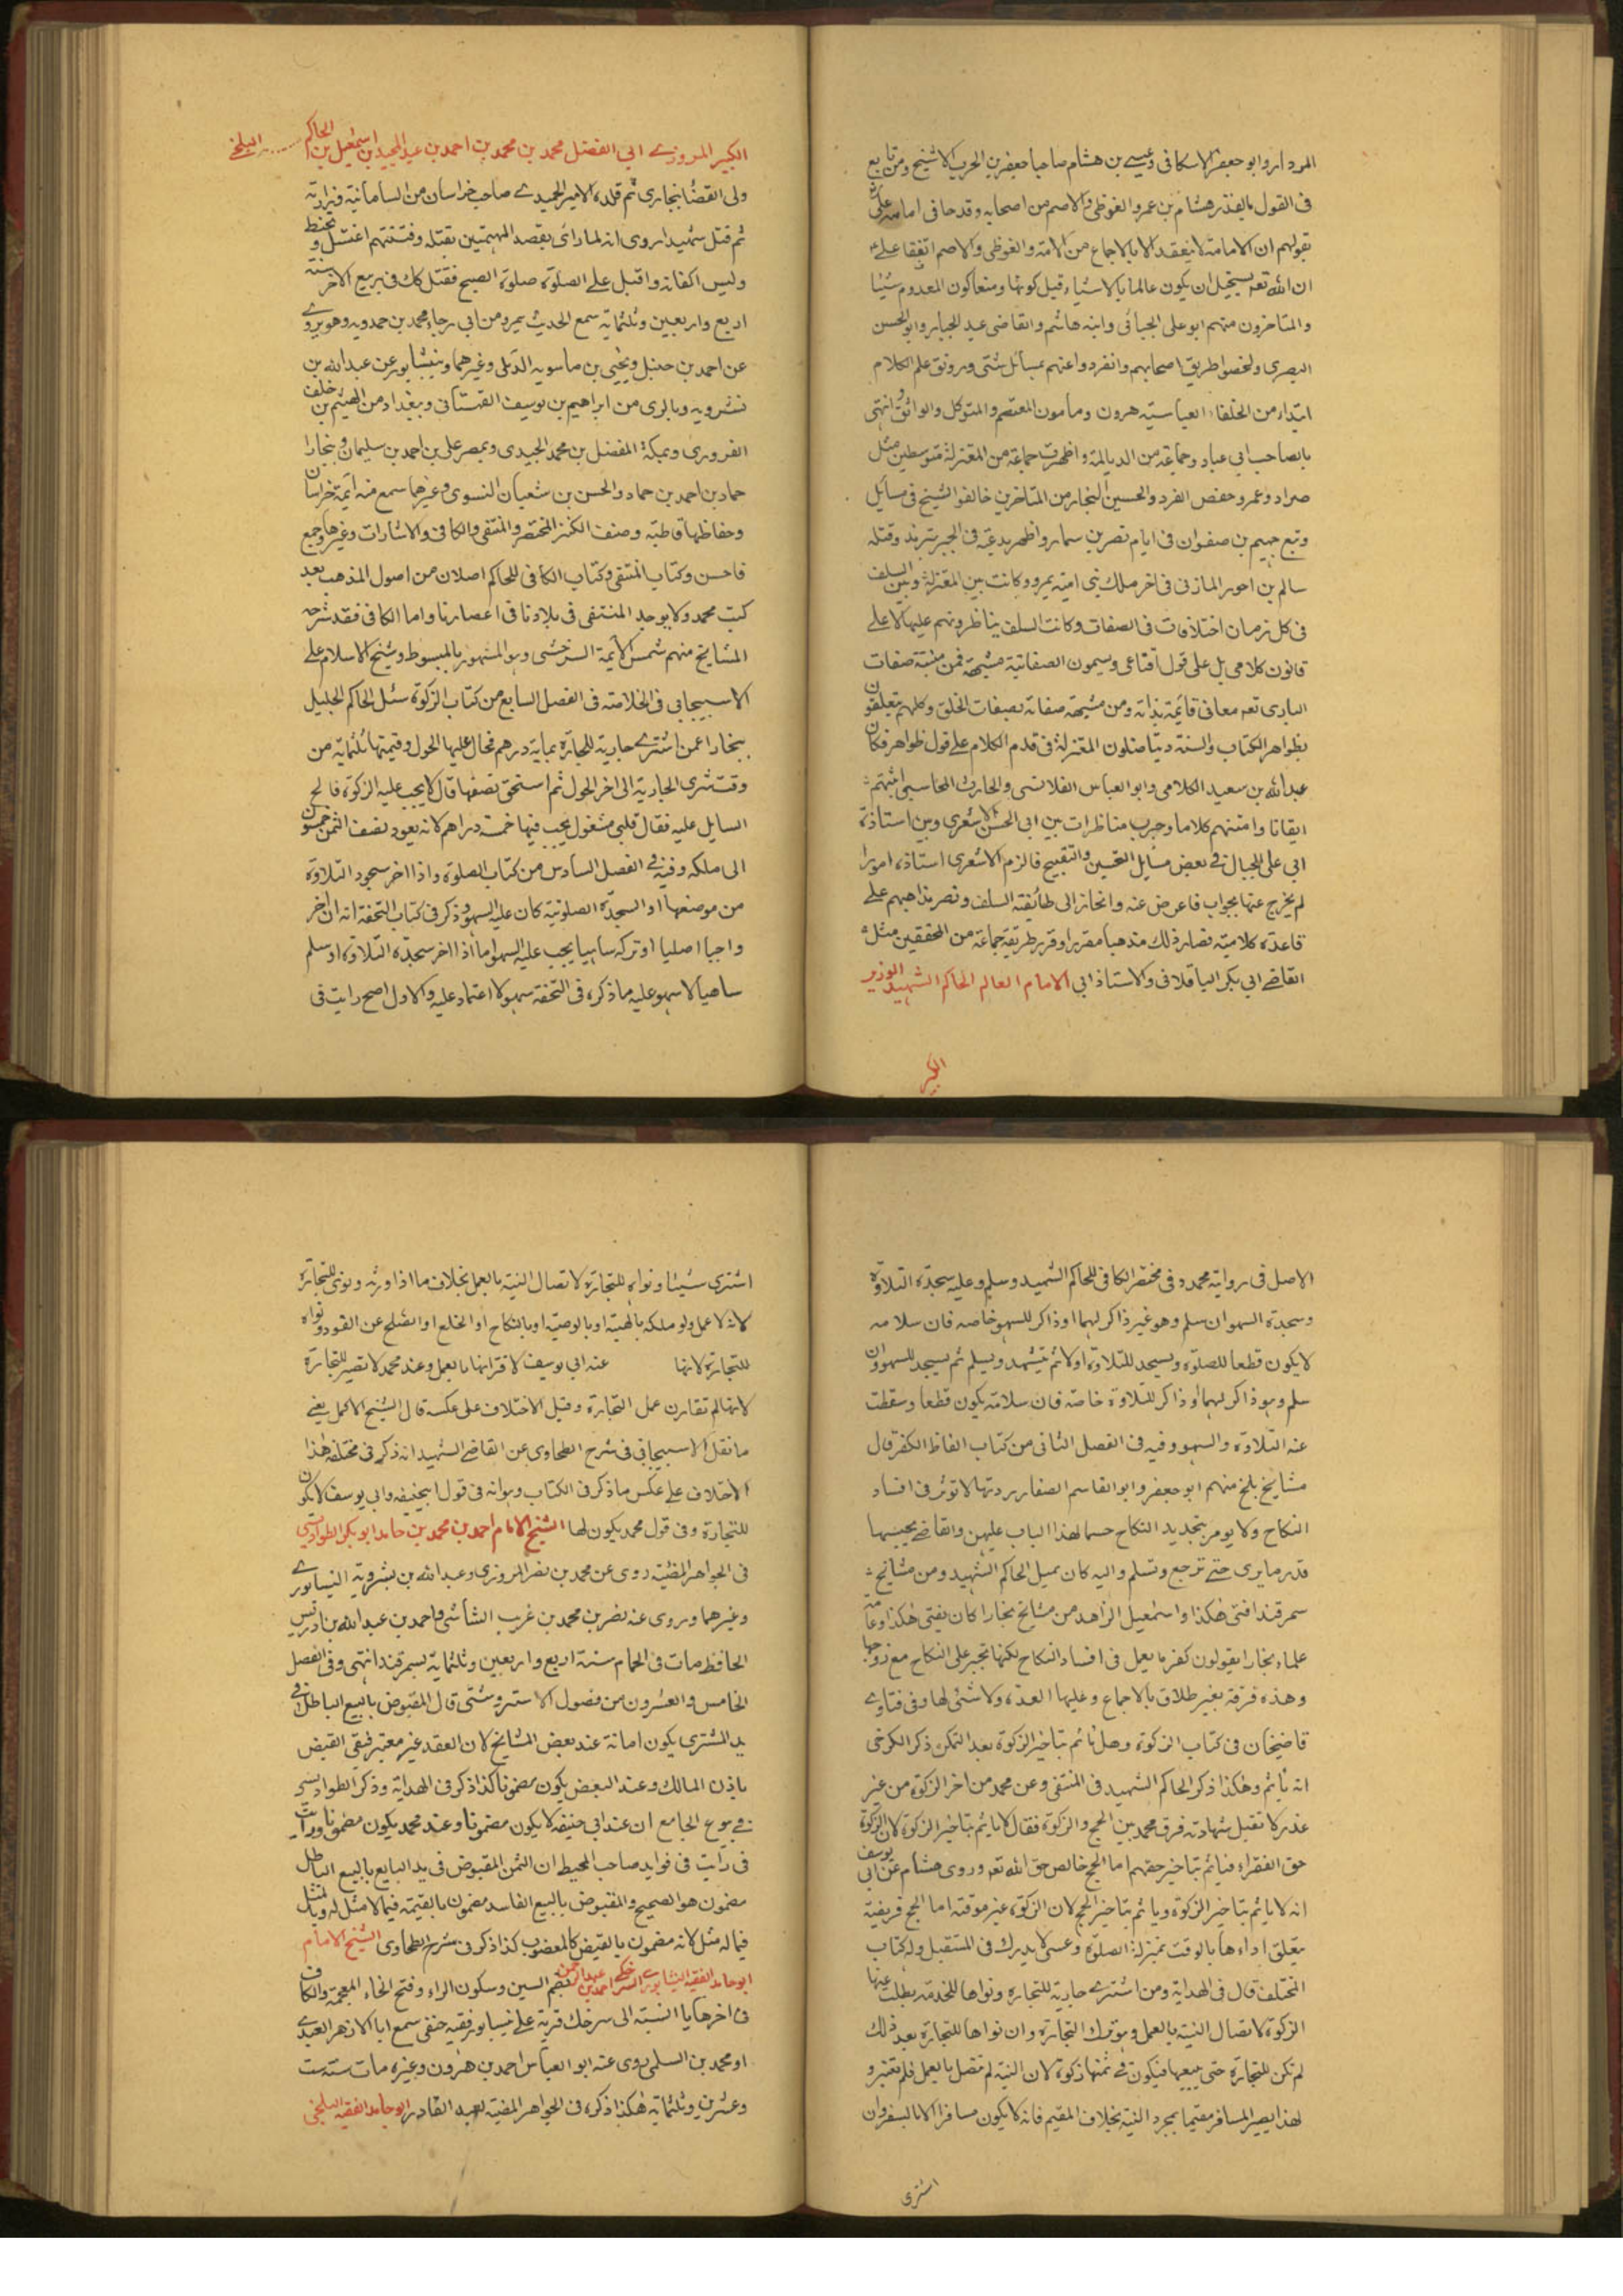 المردار وابو جعفر الاسكافى وعيسى بن هشام صاحبا جعفر بن الحرب الاشيخ ومن تابع
فى القول بالقدر هشام بن عمرو الفوطى والاصم من اصحابه وقدحا فى امامة على
بقولهم ان الامامة لا ينعقد الا بالاجماع من الامة والفوطى والاصم اتفقا على
ان الله تعه يستحيل ان يكون عالما بالاشياء قبل كونها ومنعا كون المعدوم شيئا
والمتاخرون منهم ابو على الجبائى وابنه هاشم والقاضى عبد الجبار وابو الحسن
البصرى ولخصوا طريق اصحابهم وانفردوا عنهم بمسائل شتى ورونق علم الكلام
ابتداء من الخلفاء العباسيته هرون ومامون المعتصم والمتوكل والواثق وانتهى
بالصاحب ابى عباد وجماعة من الديالمة واظهرت جماعة من المعتزلة متوسطين مثل
ضرار وعمرو حفص الفرد والحسين النجار من المتاخرين خالفوا الشيخ فى مسائل
وتبع جهيم بن صفوان فى ايام نصر بن سيار واظهر بدعته فى الجبر بترمذ وقتله
سالم بن احور المازنى فى اخر ملك بنى امية بمرو وكانت بين المعتزلة وبين السلف
فى كل زمان اختلافات فى الصفات وكانت السلف يناظرونهم عليها لا على
قانون كلامى بل على قول اقناعى ويسمون الصفاتية مشبهة فمن مثبتة صفات
البارى تعه معانى قائمة بذاته ومن مشبهة صفاته بصفات الخلق وكلهم يتعلقون
بظواهر الكتاب والسنة ويناضلون المعتزلة فى قدم الكلام على قول ظواهر فكان
عبد الله بن سعيد الكلامى وابو العباس القلانسى والحارث المحاسبى اثبتهم
ايقانا وامتنهم كلاما وجرت مناظرات بين ابى الحسن الاشعرى وبين استاذه
ابى على الجبائى فى بعض مسايل التحسين والتقبيح فالزم الاشعرى استاذه امورا
لم يخرج عنها بجواب فاعرض عنه وانحاز الى طائفته السلف ونصر مذاهبهم على
قاعدة كلامية فصار ذلك مذهبا مقررا وقرر طريقة جماعة من المحققين مثل
القاضى ابى بكر الباقلانى والاستاذ ابى الامام العالم الحاكم الشهيد الوزير
الكبير
الكبير المروزى ابى الفضل محمد بن محمد بن احمد بن عبد المجيد بن اسمعيل بن الحاكم البلخى
ولى القضا ببخارى ثم قلده الامير الحميدى صاحب خراسان من السامانية وزارته
ثم قتل شهيدا روى انه لما رائى بقصد المهتمين بقتله وفتنتهم اغتسل وتحنط
ولبس اكفانه واقبل على الصلوة صلوة الصبح فقتل كك فى ربيع الاخر سنة
اربع واربعين وثلثماية سمع الحديث بمرو من ابى رجاء محمد بن حمدويه وهو يروى
عن احمد بن حنبل ويحيى بن ماسويه الدبلى وغيرهما وبنيشابور عن عبد الله بن
نشرويه وبالرى من ابراهيم بن يوسف القهستانى وببغداد من الهيثم بن خلف
الفرورى وبمكة المفضل بن محمد الجبيدى وبمصر على بن احمد بن سليمان وبخارا
حماد بن احمد بن حماد والحسن بن شعبان النسوى وغيرهما سمع منه ائمة خراسان
وحفاظها قاطبة وصنف الكنز المختصر والمنتقى والكافى والاشارات وغيرها وجمع
فاحسن وكتاب المنتقى وكتاب الكافى للحاكم اصلان من اصول المذهب بعد
كتب محمد ولا يوجد المنتقى فى بلادنا فى اعصارنا واما الكافى فقد شرحه
المشايخ منهم شمس الائمة السرخسى وهو المشهور بالمبسوط وشيخ الاسلام على
الاسبيجابى فى الخلاصته فى الفصل السابع من كتاب الزكوة سئل الحاكم الجليل
ببخارا عمن اشترى جارية للتجارة بماية درهم فحال عليها الحول وقيمتها ثلثماية من
وقت شرى الجارية الى اخر الحول ثم استحق نصفها قال لا يجب عليه الزكوة فالح
السايل عليه فقال قلبى مشغول يجب فيها خمسة دراهم لانه يعود بنصف الثمن خمسون
الى ملكه وفيه فى الفصل السادس من كتاب الصلوة واذا اخر سجود التلاوة
من موضعها او السجدة الصلوتية كان عليه السهو وذكر فى كتاب التحفة انه ان اخر
واجبا اصليا او تركه ساهيا يجب عليه السهو اما اذا اخر سجدة التلاوة او سلم
ساهيا لا سهو عليه ما ذكره فى التحفة سهو لا اعتماد عليه والاول اصح رايت فى
الاصل فى رواية محمد وفى مختصر الكافى للحاكم الشهيد وسلم وعليه سجدة التلاوة
وسجدة السهو ان سلم وهو غير ذاكر لهما او ذاكر للسهو خاصه فان سلامه
لا يكون قطعا للصلوة ويسجد للتلاوة اولا ثم يتشهد ويسلم ثم يسجد للسهو وان
سلم وهو ذاكر لهما او ذاكر للتلاوة خاصة فان سلامه يكون قطعا وسقطت
عنه التلاوة والسهو وفيه فى الفصل الثانى من كتاب الفاظ الكفر قال
مشايخ بلخ منهم ابو جعفر وابو القاسم الصفار بردتها لا توثر فى افساد
النكاح ولا يومر بتجديد النكاح حسما لهذا الباب عليهن والقاضى يحبسها
قدر ما يرى حتى ترجع وتسلم واليه كان يميل الحاكم الشهيد ومن مشايخ
سمرقند افتى هكذا واسمعيل الزاهد من مشايخ بخارا كان يفتى هكذا وعامة
علماء بخارا يقولون كفرها يعمل فى افساد النكاح لكنها تجبر على النكاح مع زوجها
وهذه فرقة بغير طلاق بالاجماع وعليها العدة ولا شئى لها وفى فتاوى
قاضيخان فى كتاب الزكوة وهل ياثم بتاخير الزكوة بعد التمكن ذكر الكرخى
انه ياثم وهكذا ذكر الحاكم الشهيد فى المنتقى وعن محمد من اخر الزكوة من غير
عذر لا تقبل شهادته فرق محمد بين الحج والزكوة فقال لا ياثم بتاخير الزكوة لان الزكوة
حق الفقراء فياثم بتاخير حقهم اما الحج خالص حق الله تعه وروى هشام عن ابى يوسف
انه لا ياثم بتاخير الزكوة وياثم بتاخير الحج لان الزكوة غير موقتة اما الحج فريضة
يتعلق اداءها بالوقت بمنزلة الصلوة وعسى لا يدرك فى المستقبل وله كتاب
المختلف قال فى الهداية ومن اشترى جارية للتجارة ونواها للخدمة بطلت عنها
الزكوة لاتصال النية بالعمل وهو ترك التجارة وان نواها للتجارة بعد ذلك
لم تكن للتجارة حتى يبيعها فيكون فى ثمنها زكوة لان النية لم تتصل بالعمل فلم تعتبر و
لهذا يصير المسافر مقيما بمجرد النية بخلاف المقيم فانه لا يكون مسافرا الا بالسفر وان
اشترى
اشترى شيئا ونواه للتجارة لاتصال النية بالعمل بخلاف ما اذا ورثه ونوى للتجارة
لانه لا عمل ولو ملكه بالهبة او بالوصية او بالنكاح او الخلع او الصلح عن القود ونواه
للتجارة لانها عند ابى يوسف لاقترانها بالعمل وعند محمد لا تصير للتجارة
لانها لم تقارن عمل التجارة وقيل الاختلاف على عكسه قال الشيخ الاكمل يعنى
ما نقل الاسبيجابى فى شرح الطحاوى عن القاضى الشهيد انه ذكر فى مختلفه هذا
الاختلاف على عكس ما ذكر فى الكتاب وهو انه فى قول ابيحنيفه وابى يوسف لا يكون
للتجارة وفى قول محمد يكون لها الشيخ الامام احمد بن محمد بن حامد ابو بكر الطواويسى
فى الجواهر المضية روى عن محمد بن نصر المروزى وعبد الله بن بشرويه النيسابورى
وغيرهما وروى عنه نصر بن محمد بن غريب الشاشى واحمد بن عبد الله بن ادريس
الحافظ مات فى الحمام سنة اربع واربعين وثلثماية بسمرقند انتهى وفى الفصل
الخامس والعشرون من فصول الاستروشنى قال المقبوض بالبيع الباطل فى
يد المشترى يكون امانة عند بعض المشايخ لان العقد غير معتبر فبقى القبض
باذن المالك وعند البعض يكون مضمونا كذا ذكر فى الهداية وذكر الطواويسى
فى بيوع الجامع ان عند ابى حنيفه لا يكون مضمونا وعند محمد يكون مضمونا ورايت
فى رايت فى فوايد صاحب المحيط ان الثمن المقبوض فى يد البايع بالبيع الباطل
مضمون هو الصحيح والمقبوض بالبيع الفاسد مضمون بالقيمة فيما لا مثل له وبالمثل
فيما له مثل لانه مضمون بالقبض كالمغصوب كذا ذكر فى شرح الطحاوى الشيخ الامام
ابو حامد الفقيه النيشابورى السرخكى احمد بن عبد الرحمن بضم السين وسكون الراء وفتح الخاء المعجمة والكاف
فى اخرها يا النسبة الى سرخك قرية على نيسابور فقيه حنفى سمع ابا الازهر العبدى
او محمد بن السلمى روى عنه ابو العباس احمد بن هرون وغيره مات سنة ست
وعشرين وثلثماية هكذا ذكره فى الجواهر المضية لعبد القادر ابو حامد الفقيه البلخى